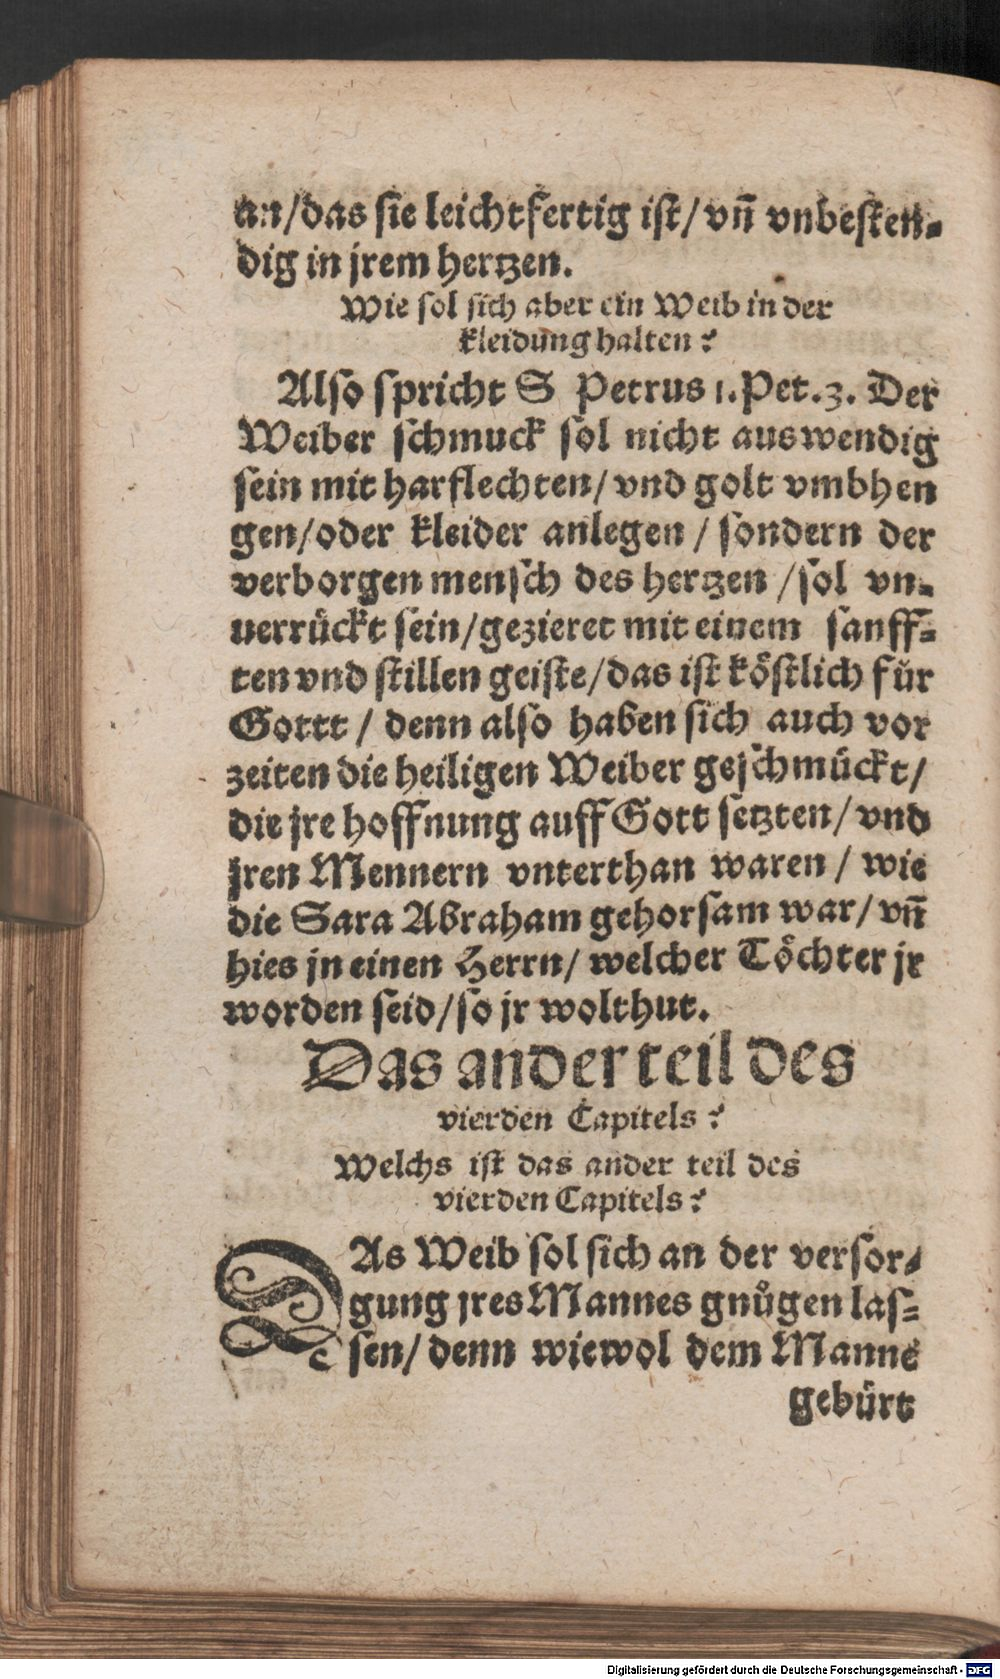 an/das sie leichtfertig ist/vñ vnbesten-
dig in jrem hertzen.
Wie sol sich aber ein Weib in der
kleidung halten?
Also spricht S Petrus 1.Pet.3. Der
Weiber schmuck sol nicht auswendig
sein mit harflechten/vnd golt vmbhen
gen/oder kleider anlegen/sondern der
verborgen mensch des hertzen/sol vn-
uerrückt sein/gezieret mit einem sanff-
ten vnd stillen geiste/das ist köstlich für
Gottt/denn also haben sich auch vor
zeiten die heiligen Weiber geschmückt/
die jre hoffnung auff Gott setzten/vnd
jren Mennern vnterthan waren/wie
die Sara Abraham gehorsam war/vñ
hies jn einen Herrn/welcher Töchter jr
worden seid/so jr wolthut.
Das ander teil des
vierden Capitels?
Welchs ist das ander teil des
vierden Capitels?
DAs Weib sol sich an der versor-
gung jres Mannes gnůgen las-
sen/denn wiewol dem Manne
gebürt
Digitalisierung gefördert durch die Deutsche Forschungsgemeinschaft - DFG